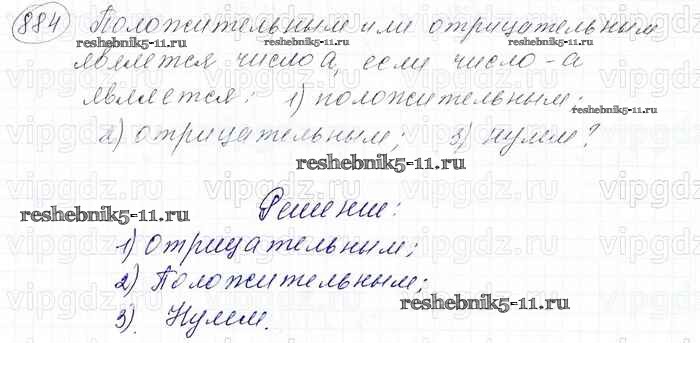 884 Положительным или отрицательным
является число а, если число -а
является: 1) положительным;
2) отрицательным; 3) нулем?
Решение:
1) отрицательным;
2) Положительным;
3) Нулем.
reshebnik5-11.ru
reshebnik5-11.ru
reshebnik5-11.ru
reshebnik5-11.ru
reshebnik5-11.ru
reshebnik5-11.ru